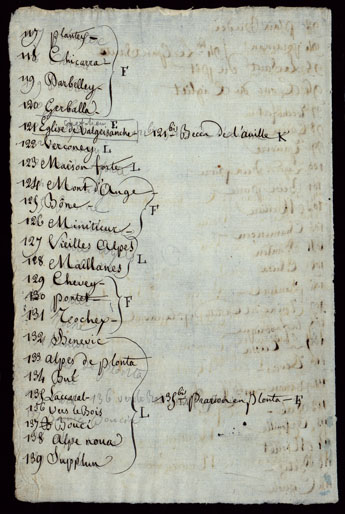 117 Plantey
118 Chicarra
119 Barbelley F
120 Gerballa
121 Eglise de Valgrisanche F 121 bis Becca de l'aville K
122 Verconey L
123 Maison forte L
124 Mont d'Ange
125 Bône F
126 Minitieur
127 Vieilles Alpes
128 Maillanes L
129 Chevey
130 Pontet F
131 Rochey
132 Benevic
133 Alpes de Plonta
134
135 135 bis en Plonta F
136 Vers le Bois L
137 Bouci
138 Alpe nova
139 Supplun